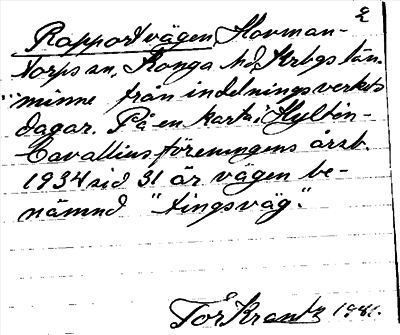 2
Rapportvägen, Hovman-
torps sn, Konga hd, Krbgs län.
minne från indelningsverkets
dagar. På en karta i Hyltén-
Cavalliusföreningens årsb.
1934 sid 31 är vägen be-
nämnd "tingsväg".
Tor Krantz 1981.